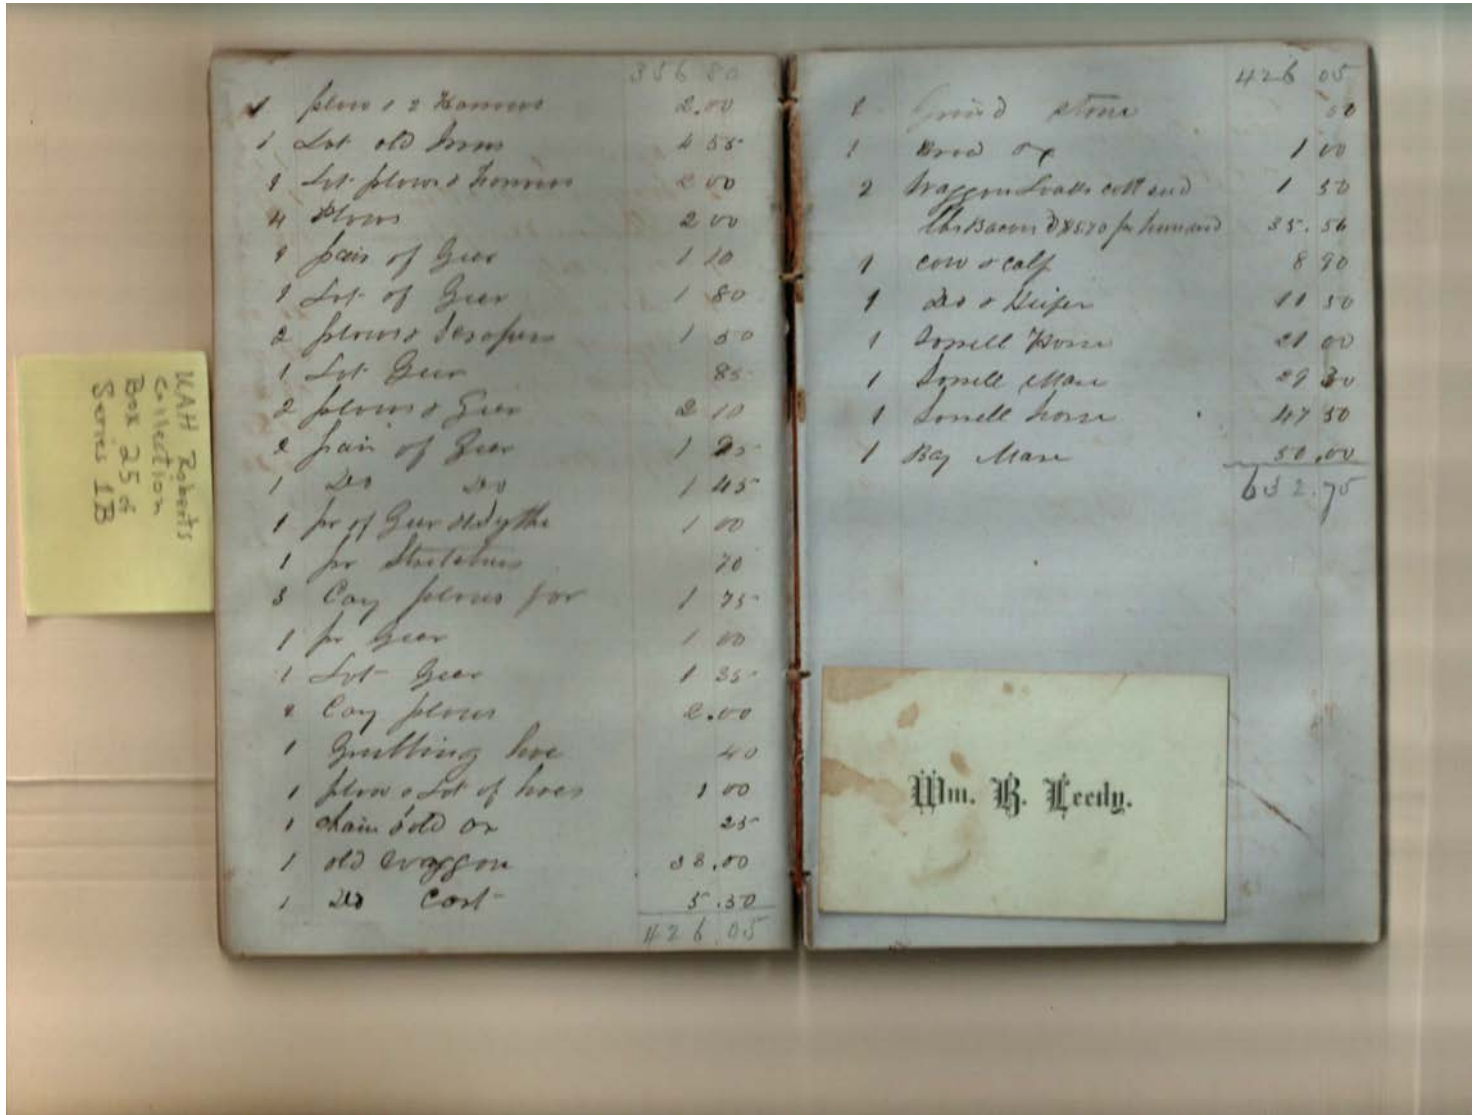 356 80
1 plow & 2 Harrows 2.00
1 Lot old Irons 4 55
1 Lot plows & Harrows 2 00
4 Plows 2 00
1 pair of Geer 1 10
1 Lot of Geer 1 80
2 plows & scrapers 1 50
1 Lot Geer 85
2 plows & Geer 2 10
2 pair of Geer 1 25
1 Do Do 1 45
1 pr of Geer & Sythe 1 00
1 pr Stretchers 70
3 Cary plows for 1 75
1 pr Geer 1 00
1 Lot Geer 1 35
2 Cary plows 2.00
1 Grubbing hoe 40
1 plow & Lot of hoes 1 00
1 chain & old 25
1 old Waggon 38.00
1 Do Cart 5.50
426.05
426 05
1 Grind stone 50
1 Broad ax 1 00
2 Waggon 1 50
lbs Bacon @ 8 5.70 per hundred 35.56
1 cow & calf 8 90
1 Do & Heifer 11 50
1 Sorrell Horse 21 00
1 Sorrell Mare 29 30
1 Sorrell horse 47 50
1 Bay Mare 50.00
632.75
Wm. B. Leedy.
KAH Roberts
Collection
Box 25 of
Series 1B